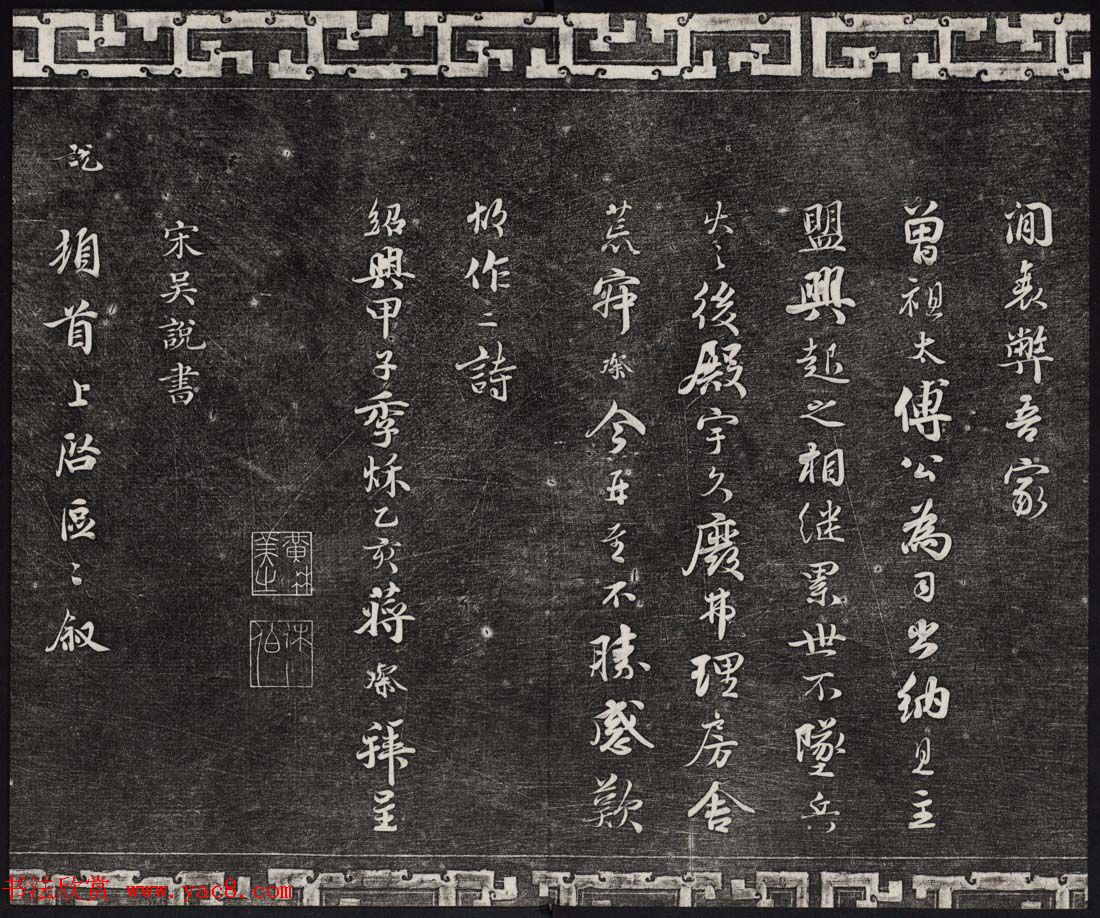 閒衰弊吾家
曾祖太傅公為司出納且主
盟興起之相継累世不墜兵
火之後殿宇久廢弗理房舍
荒寂璨今再至不勝感歎
故作二詩
紹興甲子季秋乙亥蔣璨拜呈
黃琳美之
休伯
宋吳說書
說頓首上啓區〻叙
书法欣赏 www.yac8.com